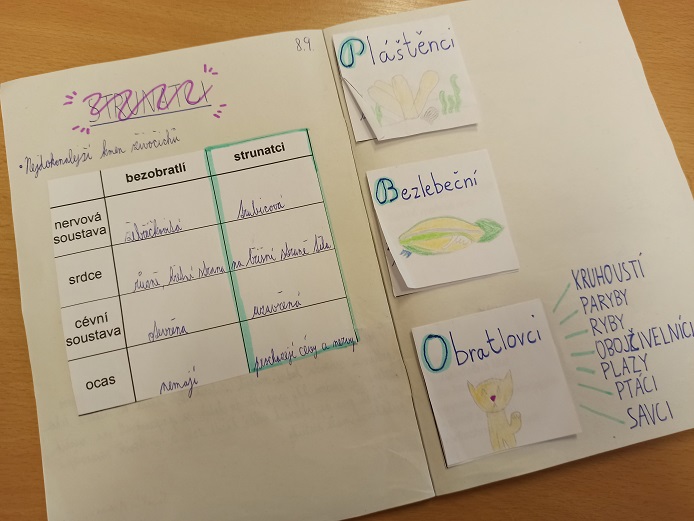 8.9.
STRUNATCI
• Nejdokonalejší kmen živočichů
bezobratlí strunatci
nervová soustava žebříčkovitá trubicová
srdce různě, břišní strana na břišní straně těla
cévní soustava otevřená uzavřená
ocas nemají prochází cévy a nervy
Pláštěnci
Bezlebeční
Obratlovci
KRUHOUSTÍ
PARYBY
RYBY
OBOJŽIVELNÍCI
PLAZY
PTÁCI
SAVCI